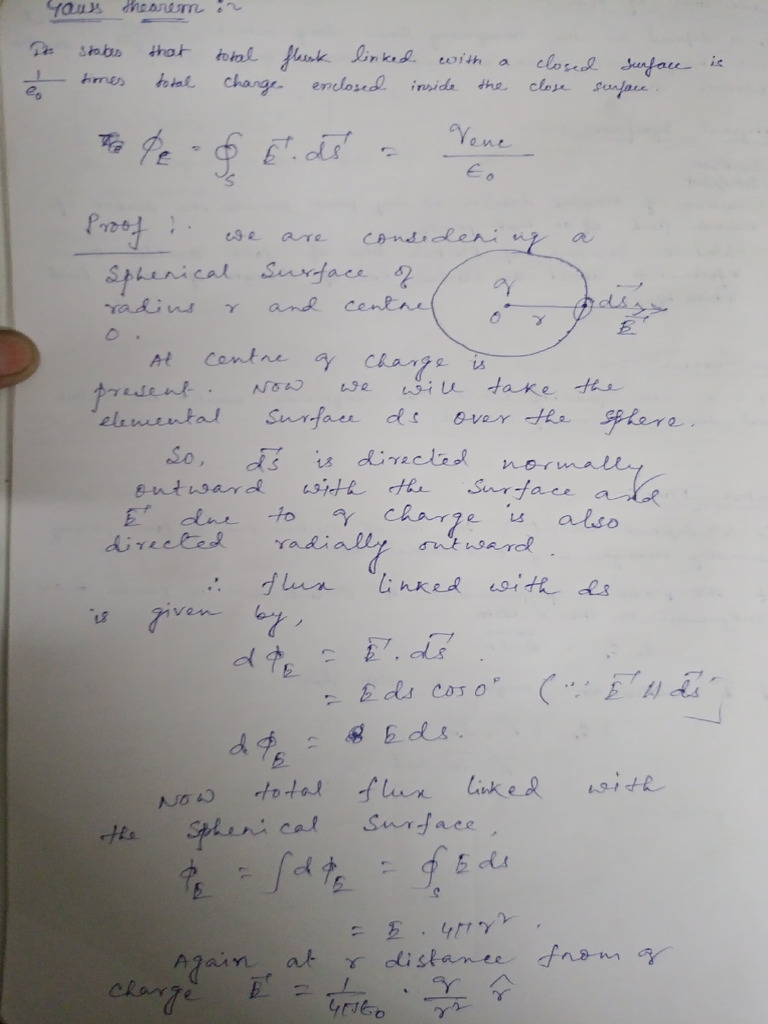 Gauss theorem :~
It states that total flux linked with a closed surface is
1/ε₀ times total charge enclosed inside the close surface.
ϕ_E = ∮_S E⃗ . ds⃗ = q_enc / ε₀
Proof :. we are considering a
spherical surface of
radius r and centre
O.
q
O r ds⃗ E⃗
At centre q charge is
present. Now we will take the
elemental surface ds over the sphere.
So, ds⃗ is directed normally
outward with the surface and
E⃗ due to q charge is also
directed radially outward.
∴ flux linked with ds
is given by,
dϕ_E = E⃗ . ds⃗ .
= E ds cos 0° (∵ E⃗ || ds⃗ ]
dϕ_E = E ds.
Now total flux linked with
the spherical surface,
ϕ_E = ∫ dϕ_E = ∮_S E ds
= E . 4πr² .
Again at r distance from q
charge E⃗ = 1/4πε₀ . q/r² r̂